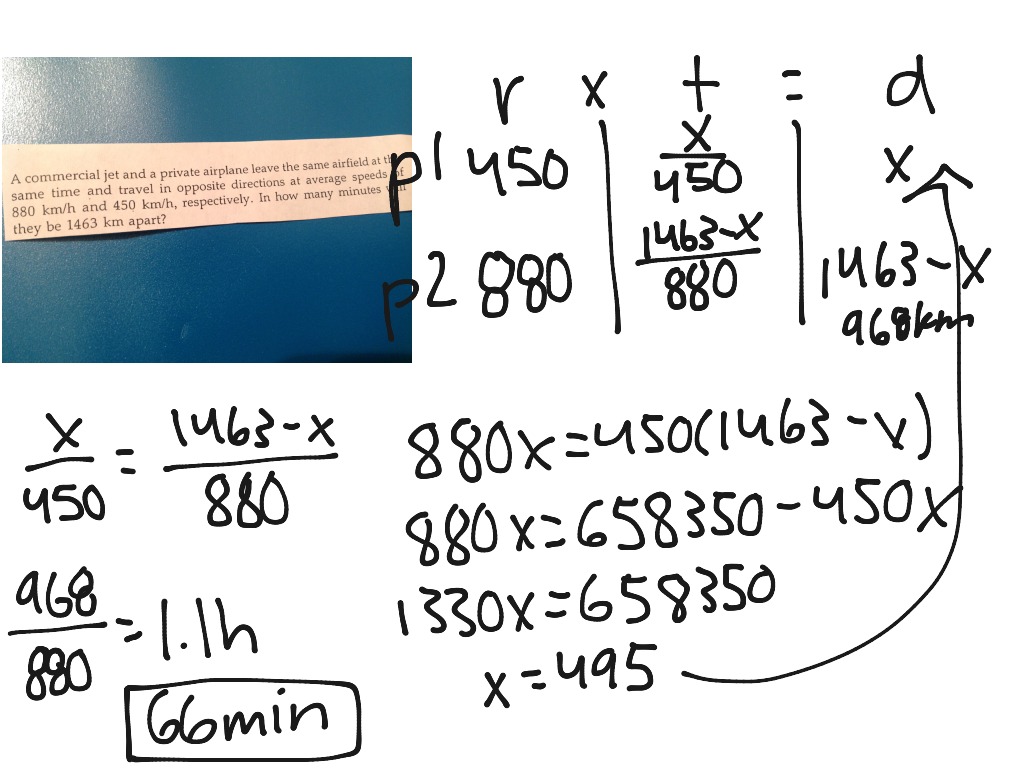 A commercial jet and a private airplane leave the same airfield at the
same time and travel in opposite directions at average speeds of
880 km/h and 450 km/h, respectively. In how many minutes will
they be 1463 km apart?
r x t = d
p1 450 x/450 x
p2 880 1463-x/880 1463-x
968km
x/450 = 1463-x/880
880x=450(1463-x)
880x=658350-450x
1330x=658350
x=495
968/880 = 1.1h
66min